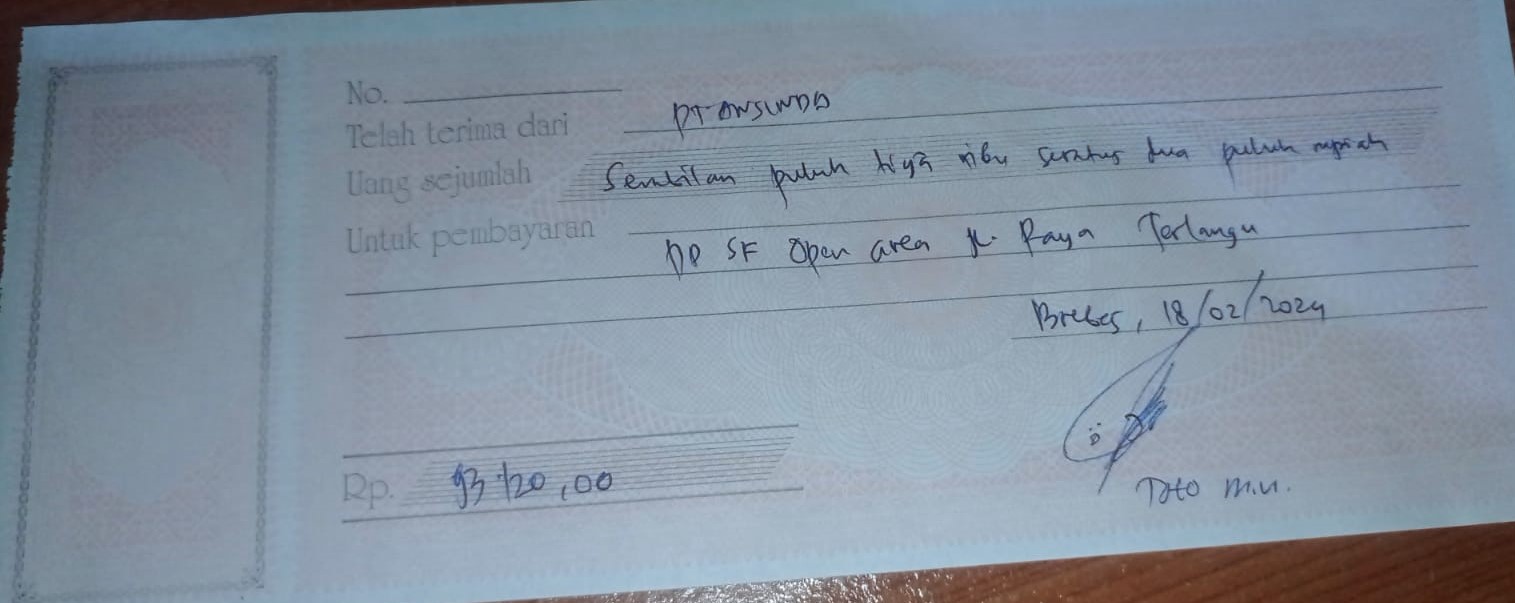 No.
Telah terima dari PT ANSUNDA
Uang sejumlah Sembilan puluh tiga ribu seratus dua puluh rupiah
Untuk pembayaran
DP SF Open area jl. Raya Terlangu
Brebes, 18/02/2024
Rp. 93 120,00
Toto M.N.